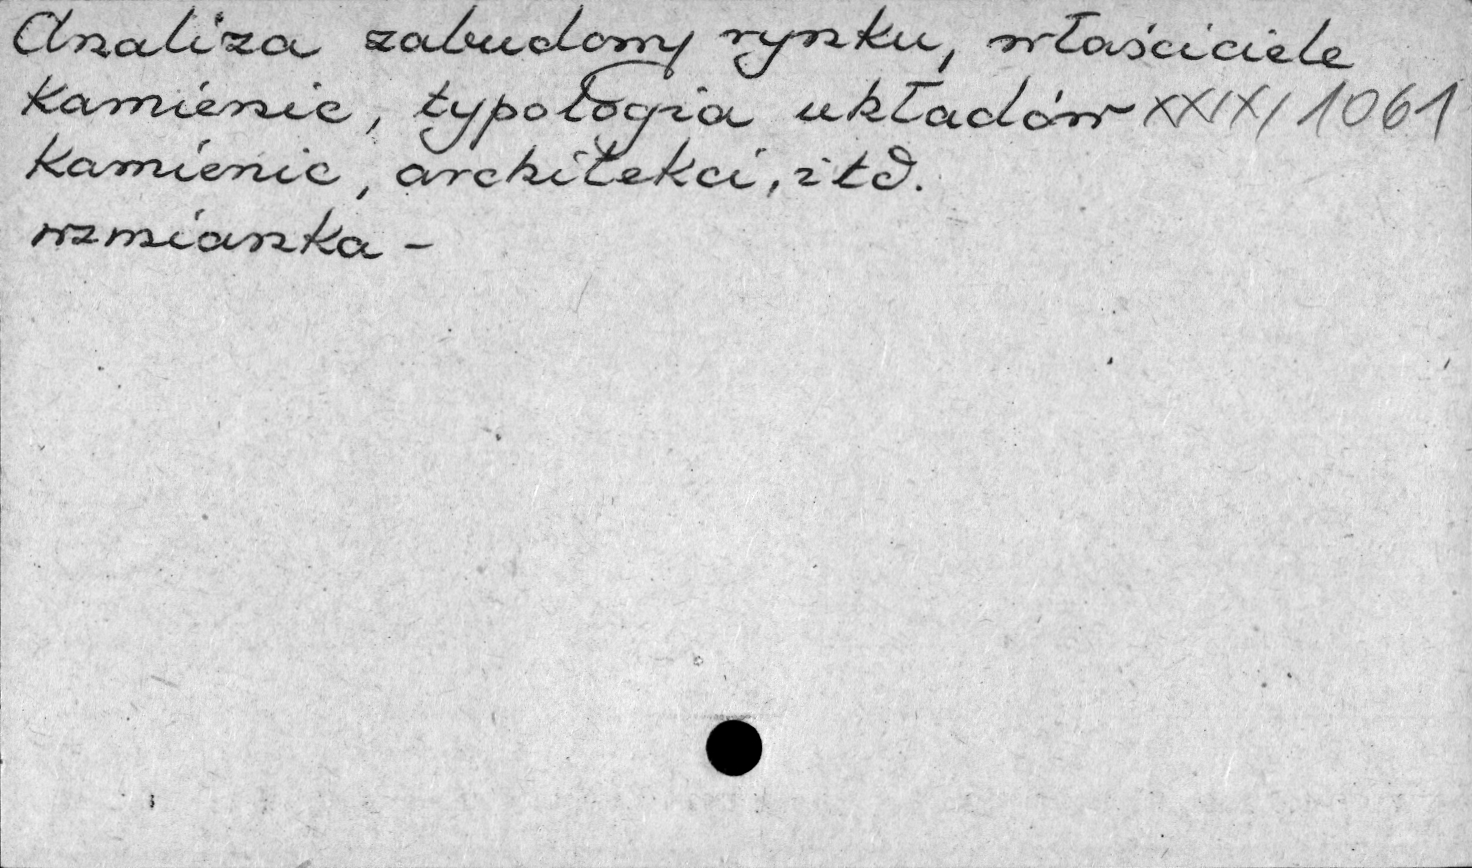 Analiza zabudowy rynku, właściciele
Kamienic, typologia układów 1061
Kamienic, architekci, itd.
wzmianka -